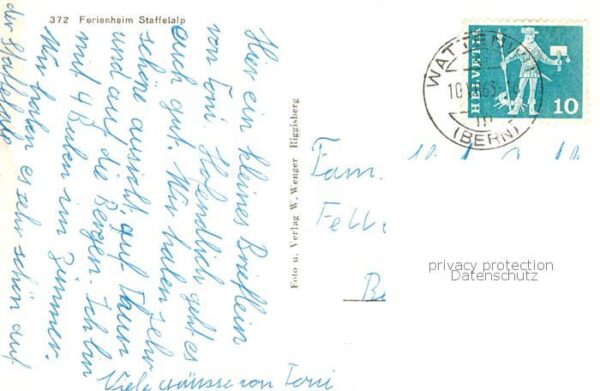 372 Ferienheim Staffelalp
Hier ein kleines Brieflein
von Toni. Hofendlich geht es
auch gut. Wir haben sehr
schöne aussicht, auf Thun
und auf die Bergen. Ich bin
mit 4 Buben im Zimmer.
Wir haben es sehr schön auf
der Staffelalp
Viele grüsse von Toni
Foto u. Verlag W. Wenger Riggisberg
HELVETIA
10
(BERN)
Fam.
privacy protection
Datenschutz